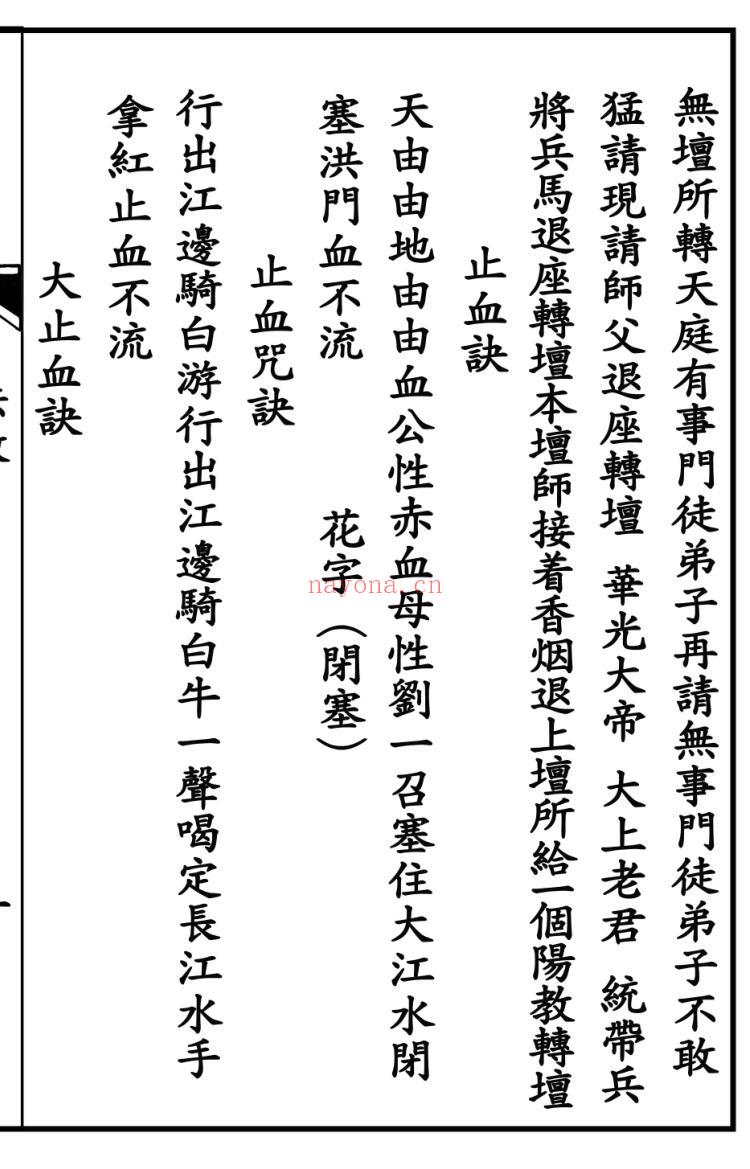 無壇所轉天庭有事門徒弟子再請無事門徒弟子不敢
猛請現請師父退座轉壇 華光大帝 大上老君 統帶兵
將兵馬退座轉壇本壇師接着香烟退上壇所給一個陽教轉壇
止血訣
天由由地由由血公性赤血母性劉一召塞住大江水閉
塞洪門血不流 花字（閉塞）
止血咒訣
行出江邊騎白游行出江邊騎白牛一聲喝定長江水手
拿紅止血不流
大止血訣
nayona.cn